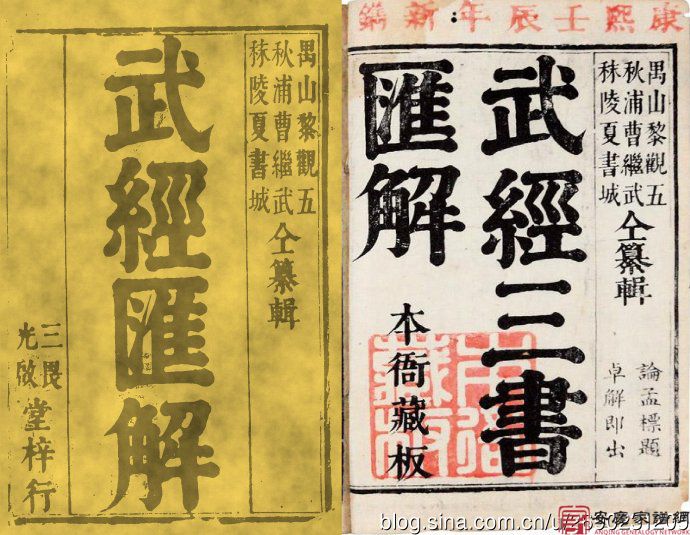 禺山黎觀五
秋浦曹繼武
秣陵夏書城
仝纂輯
武經匯解
三畏
光啟
堂梓行
康熙壬辰年新鐫
禺山黎觀五
秋浦曹繼武
秣陵夏書城
仝纂輯
論孟標題
卓解即出
武經三書
匯解
本衙藏板
blog.sina.com.cn
家譜網
ANQING GENEALOGY NETWORK